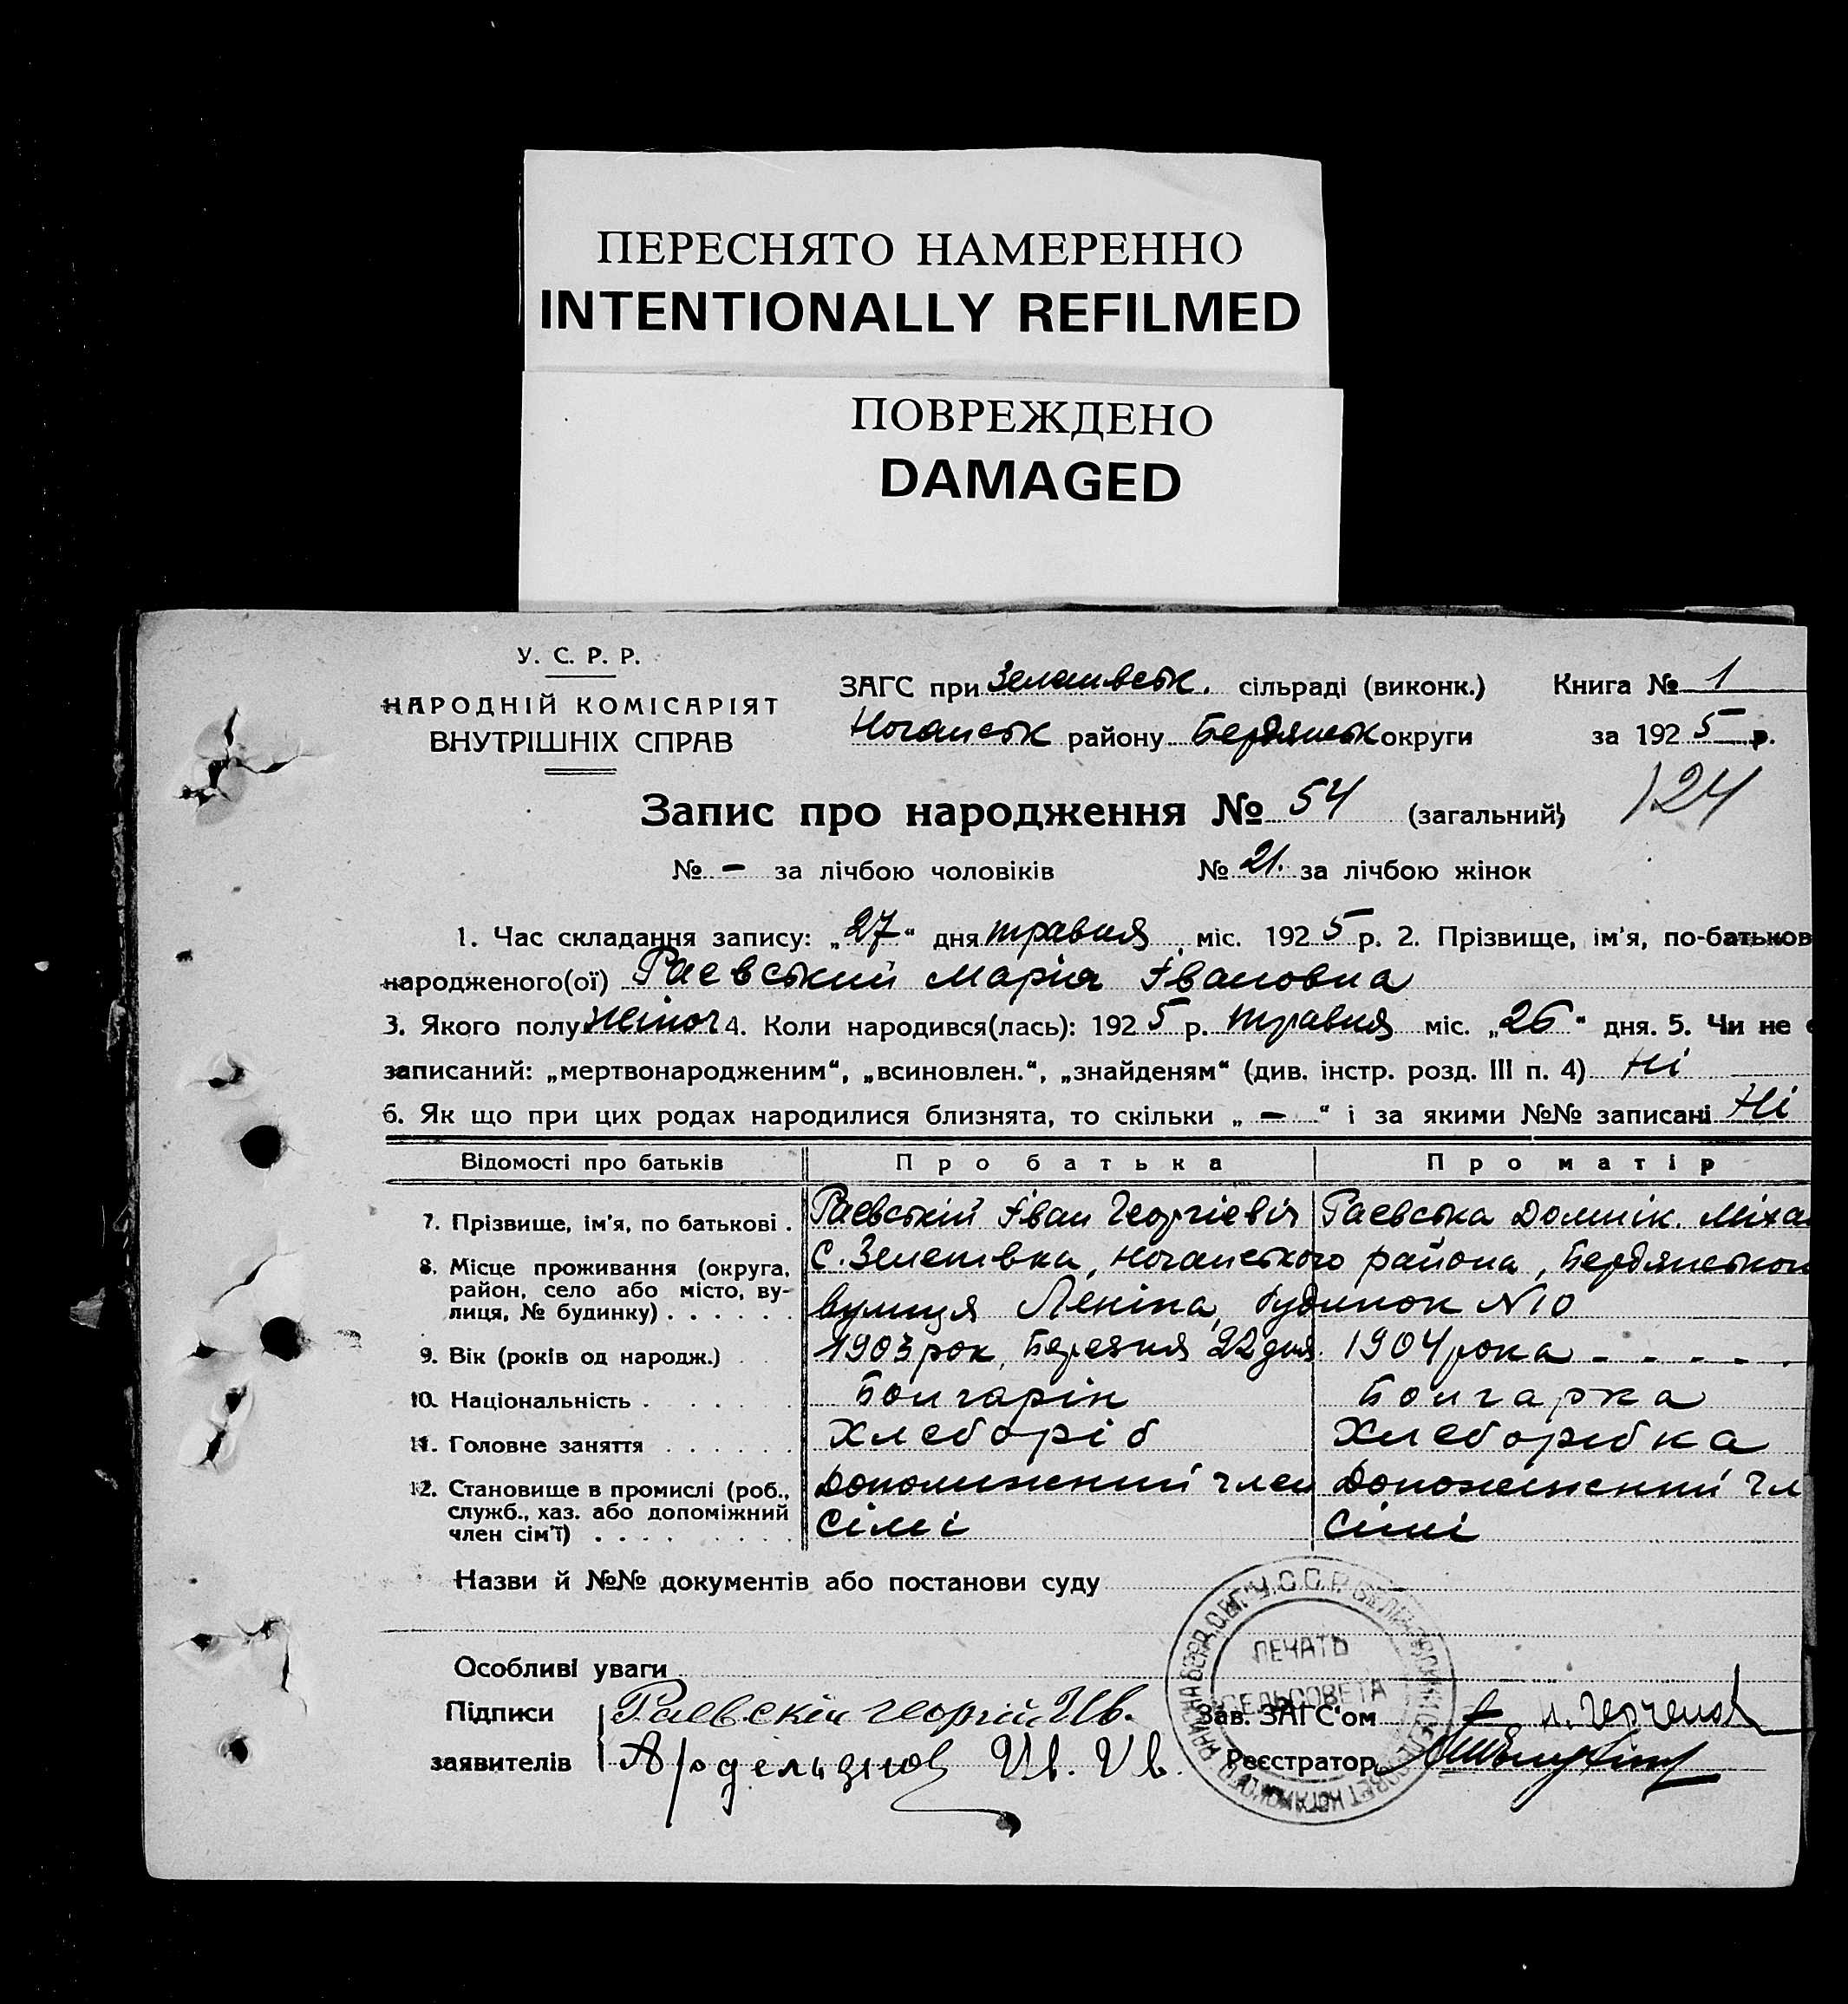 ПЕРЕСНЯТО НАМЕРЕННО
INTENTIONALLY REFILMED
ПОВРЕЖДЕНО
DAMAGED
У. С. Р. Р.
НАРОДНІЙ КОМІСАРІЯТ
ВНУТРІШНІХ СПРАВ
ЗАГС при сільраді (виконк.) Книга № 1
Ногайськ району Бердянськ округи за 1925 р.
Запис про народження № 54 (загальний) 124
№ – за лічбою чоловіків № 21. за лічбою жінок
1. Час складання запису: „27“ дня травня міс. 1925 р. 2. Прізвище, ім'я, по-батьков
народженого(ої) Раевський Марія Івановна
3. Якого полу жіноч 4. Коли народився(лась): 1925 р. травня міс. „26“ дня. 5. Чи не є
записаний: „мертвонародженим“, „всиновлен.“, „знайденям“ (див. інстр. розд. III п. 4) Ні
6. Як що при цих родах народилися близнята, то скільки „ – “ і за якими №№ записані Ні
Відомості про батьків Про батька Про матір
7. Прізвище, ім'я, по батькові . Раевський Іван Георгіевіч Раевська Домнік. Міха
8. Місце проживання (округа, район, село або місто, вулиця, № будинку) . . . . . .
С. Ногайського района, Бердянського
вулиця Леніна, будинок №10
9. Вік (років од народж.) . . 1903 рок, Березня 22 дня. 1904 рока - - - - .
10. Національність . . . . . Болгарін Болгарка
11. Головне заняття . . . . . . Хлеборіб Хлеборобка
12. Становище в промислі (роб., служб., хаз. або допоміжний член сім'ї) . . . . . . . .
член чл
сімі сімі
Назви й №№ документів або постанови суду
Особливі уваги
ПЕЧАТЬ
СЕЛЬСОВЕТА
Підписи Раевскій Георгій Ив. Зав. ЗАГС'ом
заявителів Ив. Ив. Реєстратор